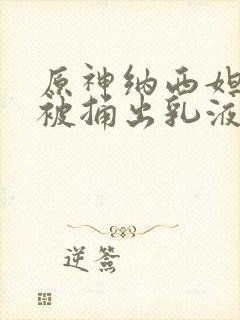 原神纳西妲
被捅出乳液
逆簽